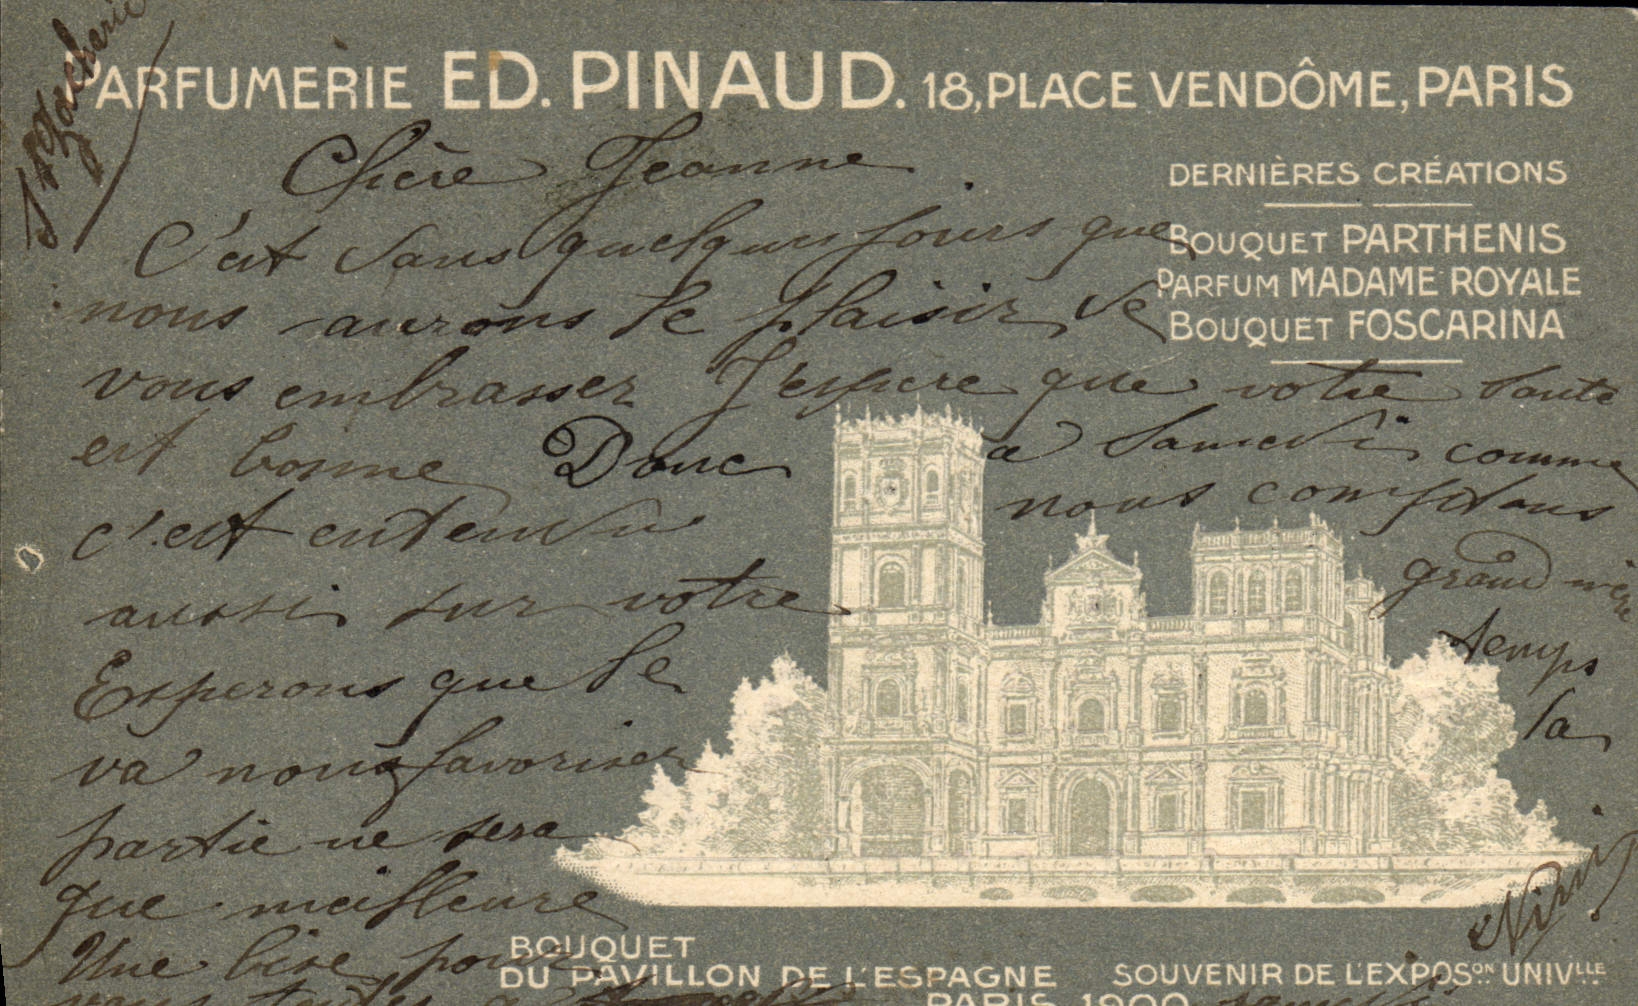 PARFUMERIE ED. PINAUD. 18, PLACE VENDÔME, PARIS
DERNIÈRES CRÉATIONS
BOUQUET PARTHENIS
PARFUM MADAME ROYALE
BOUQUET FOSCARINA
Chère Jeanne
C'est dans quelques jours que
nous aurons le plaisir de
vous embrasser J'espère que votre santé
est bonne Donc a Samedi comme
c'est entendu nous comptons
aussi sur votre grand mère
Esperons que le temps
va nous favoriser la
partie ne sera
que meilleure
Une bise pour
vous toutes a samedi
Nini
BOUQUET
DU PAVILLON DE L'ESPAGNE
SOUVENIR DE L'EXPOS.ON UNIV.LLE
PARIS 1900